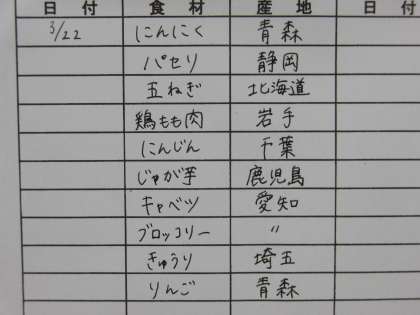 日 付 食 材 産 地 日 付
3/22 にんにく 青森
パセリ 静岡
五ねぎ 北海道
鶏もも肉 岩手
にんじん 千葉
じゃが芋 鹿児島
キャベツ 愛知
ブロッコリー 〃
きゅうり 埼玉
りんご 青森